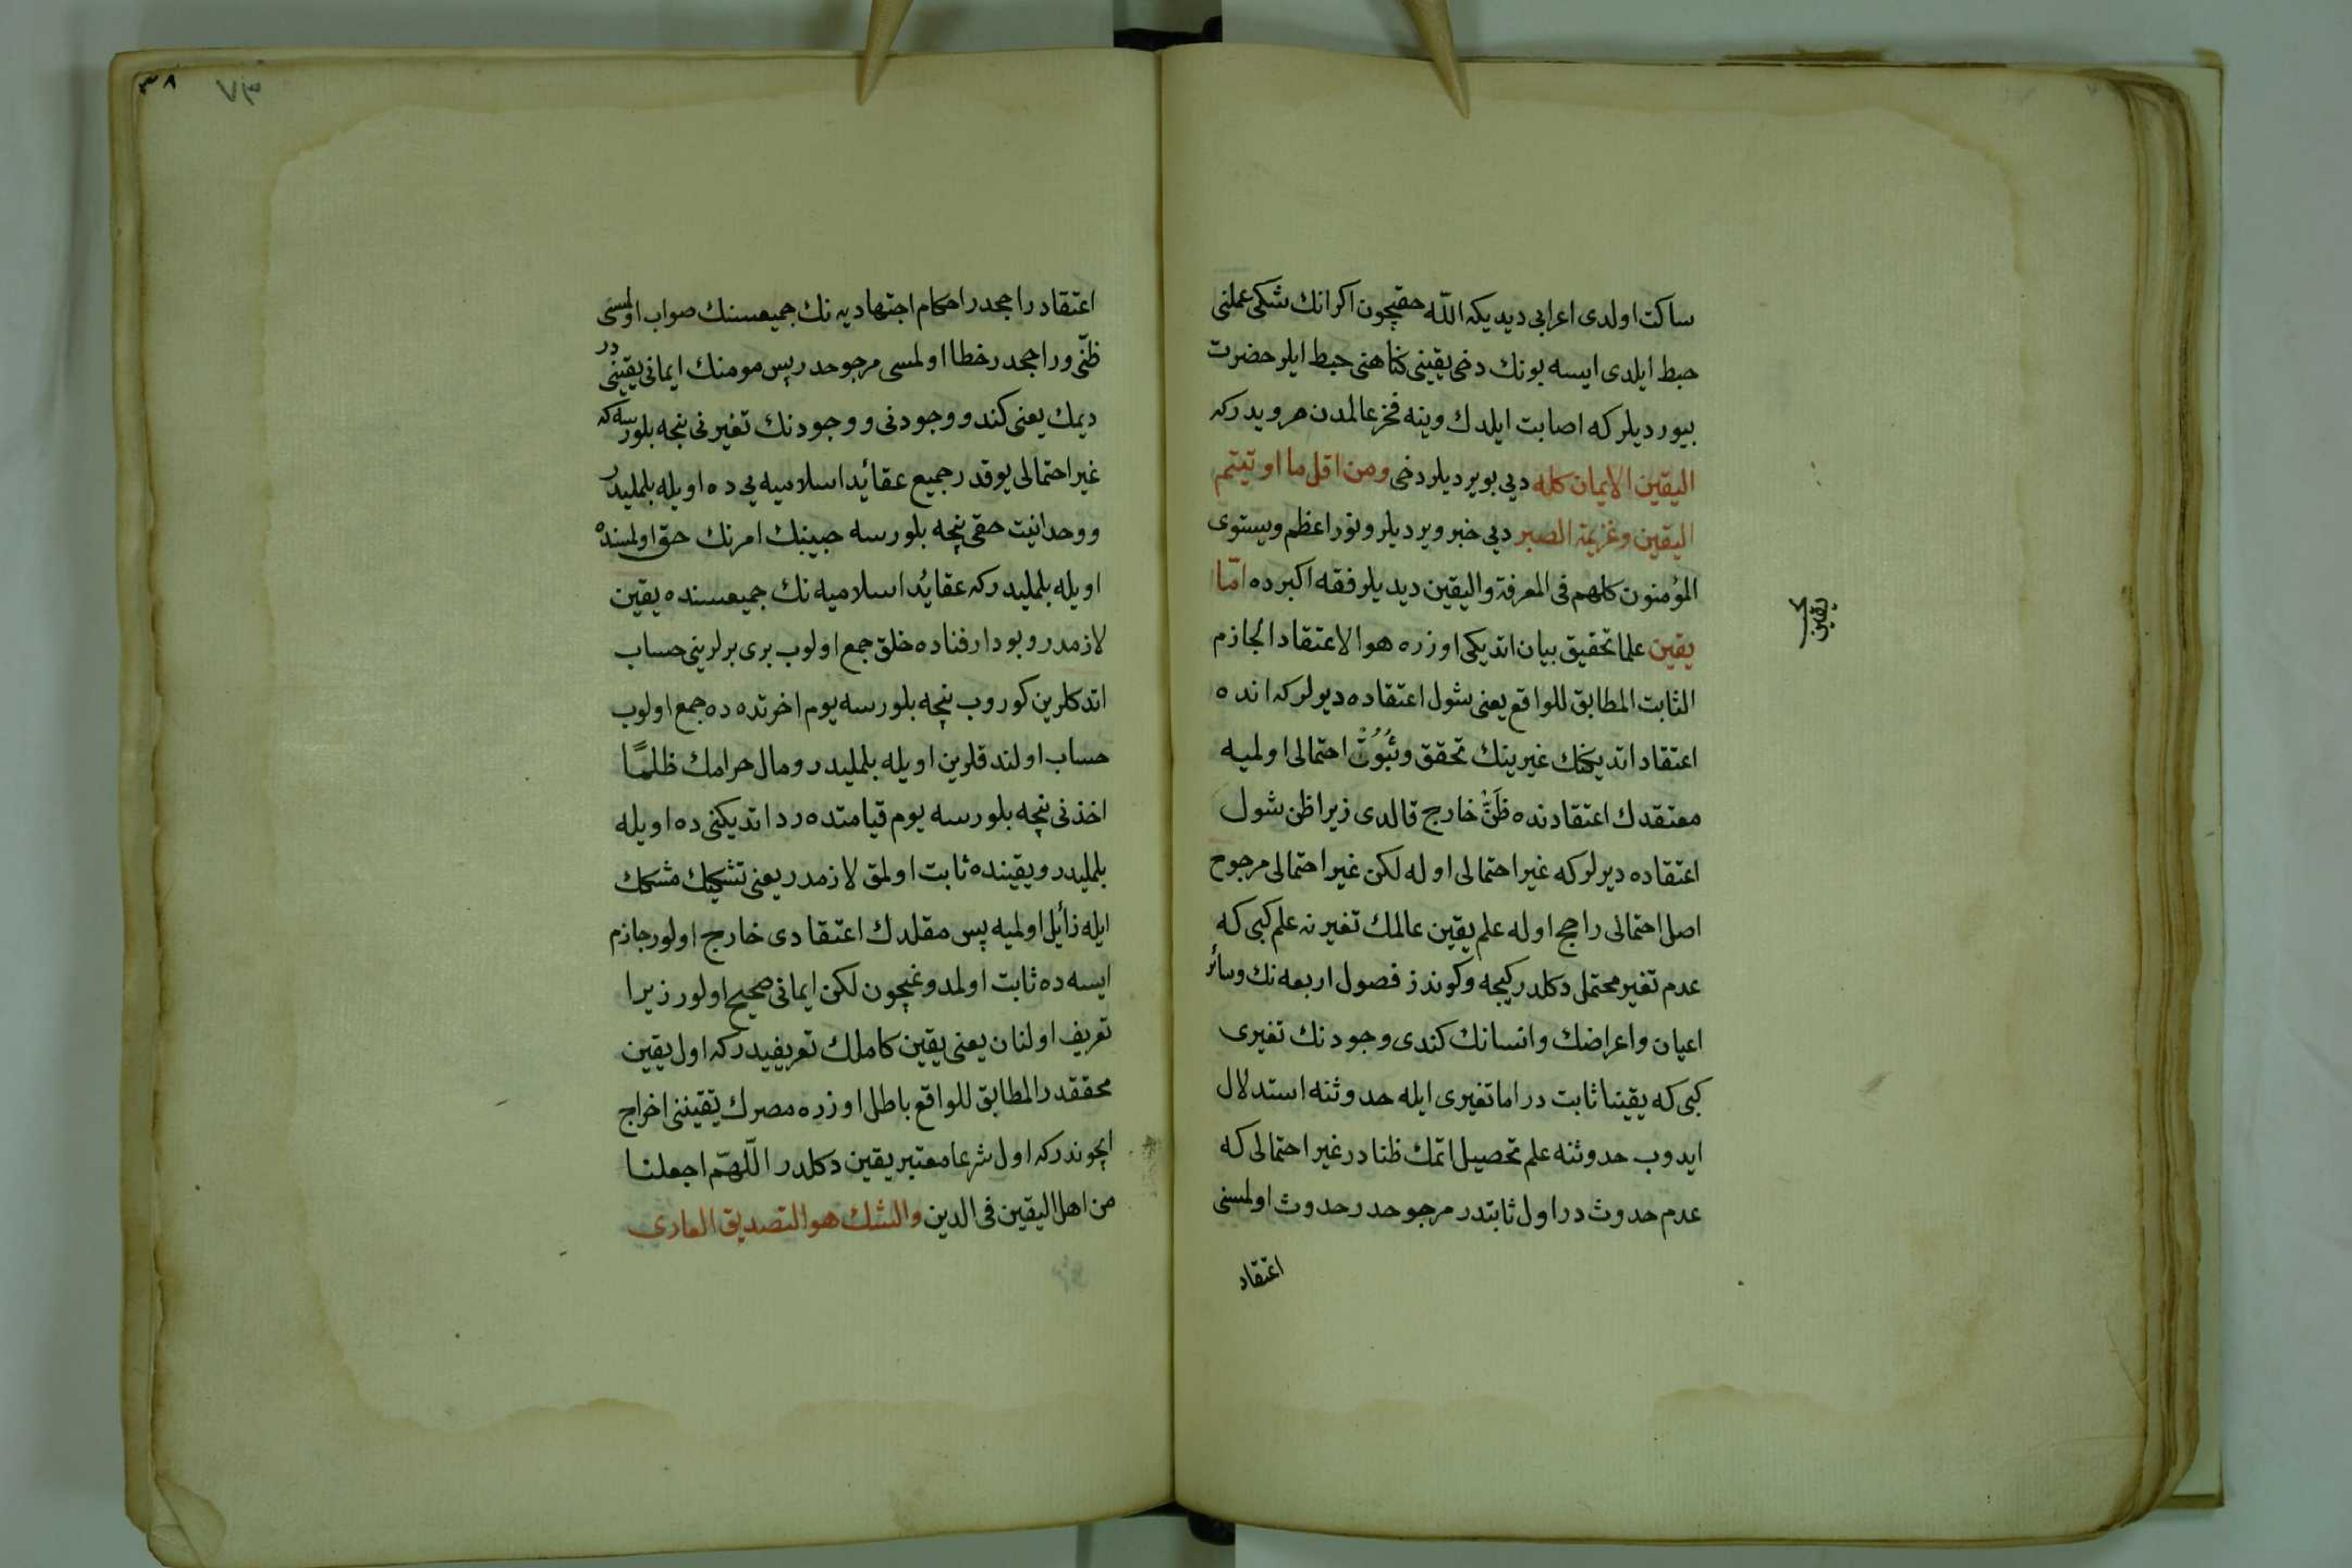 ساكت اولدى اعرابى ديديكه الله حقيچون اكر انك شكى عملنى
حبط ايلدى ايسه بونك دخى يقينى كناهنى حبط ايلر حضرت
بيورديلر كه اصابت ايلدك وينه فخر عالمدن مرويدركه
اليقين الايمان كله ديى بويرديلر دخى ومن اقل ما اوتيتم
اليقين وعزيمة الصبر ديى خبر ويرديلر ونور اعظم ويستوى
المؤمنون كلهم فى المعرفة واليقين ديديلر فقه اكبرده اما
يقين علما تحقيق بيان اتديكى اوزره هو الاعتقاد الجازم
الثابت المطابق للواقع يعنى شول اعتقاده ديولركه انده
اعتقاد اتديكنك غيرينك تحقق وثبوت احتمالى اولميه
معتقدك اعتقادنده ظن خارج قالدى زيرا ظن شول
اعتقاده ديرلركه غير احتمالى اوله لكن غير احتمالى مرجوح
اصل احتمالى راجح اوله علم يقين عالمك تغيرنه علم كبى كه
عدم تغير محتملى دكلدر كيجه وكوندز فصول اربعه نك وسائر
اعيان واعراضك وانسانك كندى وجودنك تغيرى
كبى كه يقينا ثابت در اما تغيرى ايله حدوثنه استدلال
ايدوب حدوثنه علم تحصيل اتمك ظنا در غير احتمالى كه
عدم حدوث در اول ثابتدر مرجوحدر حدوث اولمسنى
اعتقاد
يقين
٣٨
اعتقاد راجحدر احكام اجتهاديه نك جميعسنك صواب اولمسى
ظنى وراجحدر خطا اولمسى مرجوحدر پس مومنك ايمانى يقينى در
ديمك يعنى كندو وجودنى ووجودنك تغيرنى نيجه بلورسه كه
غير احتمالى يوقدر جميع عقائد اسلاميه يى ده اويله بلمليدر
ووحدانيت حقى نيجه بلورسه حبيبنك امرنك حق اولمسنده
اويله بلمليدركه عقايد اسلاميه نك جميعسنده يقين
لازمدر وبو دار فناده خلق جمع اولوب برى برلرينى حساب
اتدكلرين كوروب نيجه بلورسه يوم اخرتده ده جمع اولوب
حساب اولندقلرين اويله بلمليدر ومال حرامك ظلمًا
اخذنى نيجه بلورسه يوم قيامتده رد اتديكنى ده اويله
بلمليدر ويقينده ثابت اولمق لازمدر يعنى تشكيك مشكك
ايله زائل اولميه پس مقلدك اعتقادى خارج اولور جازم
ايسه ده ثابت اولمدوغيچون لكن ايمانى صحيح اولور زيرا
تعريف اولنان يعنى يقين كاملك تعريفيدركه اول يقين
محققدر المطابق للواقع باطل اوزره مصرك يقيننى اخراج
ايچوندركه اول شرعا معتبر يقين دكلدر اللّهمّ اجعلنا
من اهل اليقين فى الدين والشك هو التصديق العارى